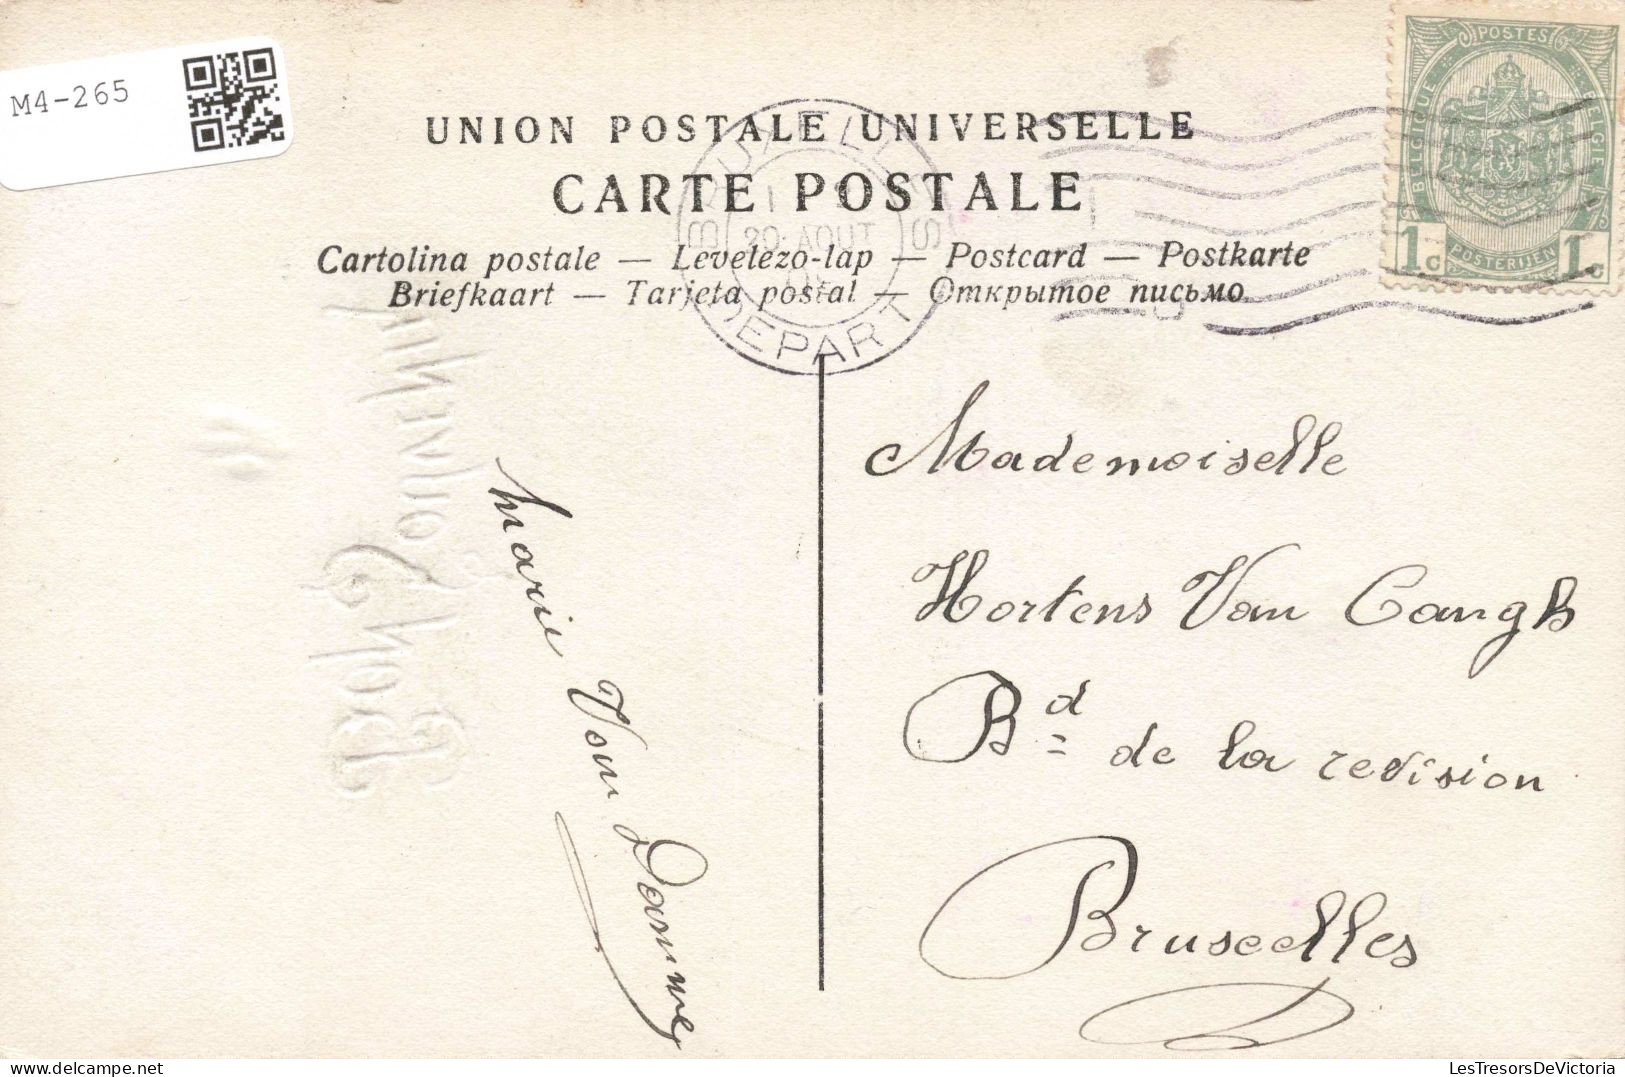 M4-265
UNION POSTALE UNIVERSELLE
CARTE POSTALE
Cartolina postale — Levelezo-lap — Postcard — Postkarte
Briefkaart — Tarjeta postal — Открытое письмо
BRUXELLES
20 AOUT
DEPART
POSTES
BELGIQUE
BELGIE
1c POSTERIJEN 1c
Mademoiselle
Hortens Van Cangh
Bd de la revision
Bruxelles
Marie Van
LesTresorsDeVictoria